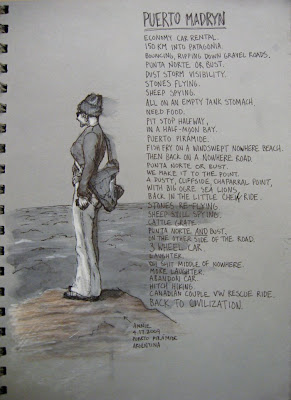 PUERTO MADRYN
ECONOMY CAR RENTAL.
150 KM INTO PATAGONIA.
BOUNCING, RIPPING DOWN GRAVEL ROADS.
PUNTA NORTE OR BUST.
DUST STORM VISIBILITY.
STONES FLYING.
SHEEP SPYING.
ALL ON AN EMPTY TANK STOMACH.
NEED FOOD.
PIT STOP HALFWAY,
IN A HALF-MOON BAY.
PUERTO PIRAMIDE.
FISH FRY ON A WINDSWEPT NOWHERE BEACH.
THEN BACK ON A NOWHERE ROAD.
PUNTA NORTE OR BUST.
WE MAKE IT TO THE POINT.
A DUSTY, CLIFFSIDE, CHAPARRAL POINT,
WITH BIG OGRE SEA LIONS.
BACK IN THE LITTLE CHEVY RIDE.
STONES RE-FLYING
SHEEP STILL SPYING.
CATTLE GRATE.
PUNTA NORTE AND BUST.
ON THE OTHER SIDE OF THE ROAD.
3 WHEEL CAR.
LAUGHTER.
OH SHIT MIDDLE OF NOWHERE.
MORE LAUGHTER.
ABANDON CAR.
HITCH HIKING.
CANADIAN COUPLE VW RESCUE RIDE.
BACK TO CIVILIZATION.
ANNIE
4.17.2009
PUERTO PIRAMIDE
ARGENTINA